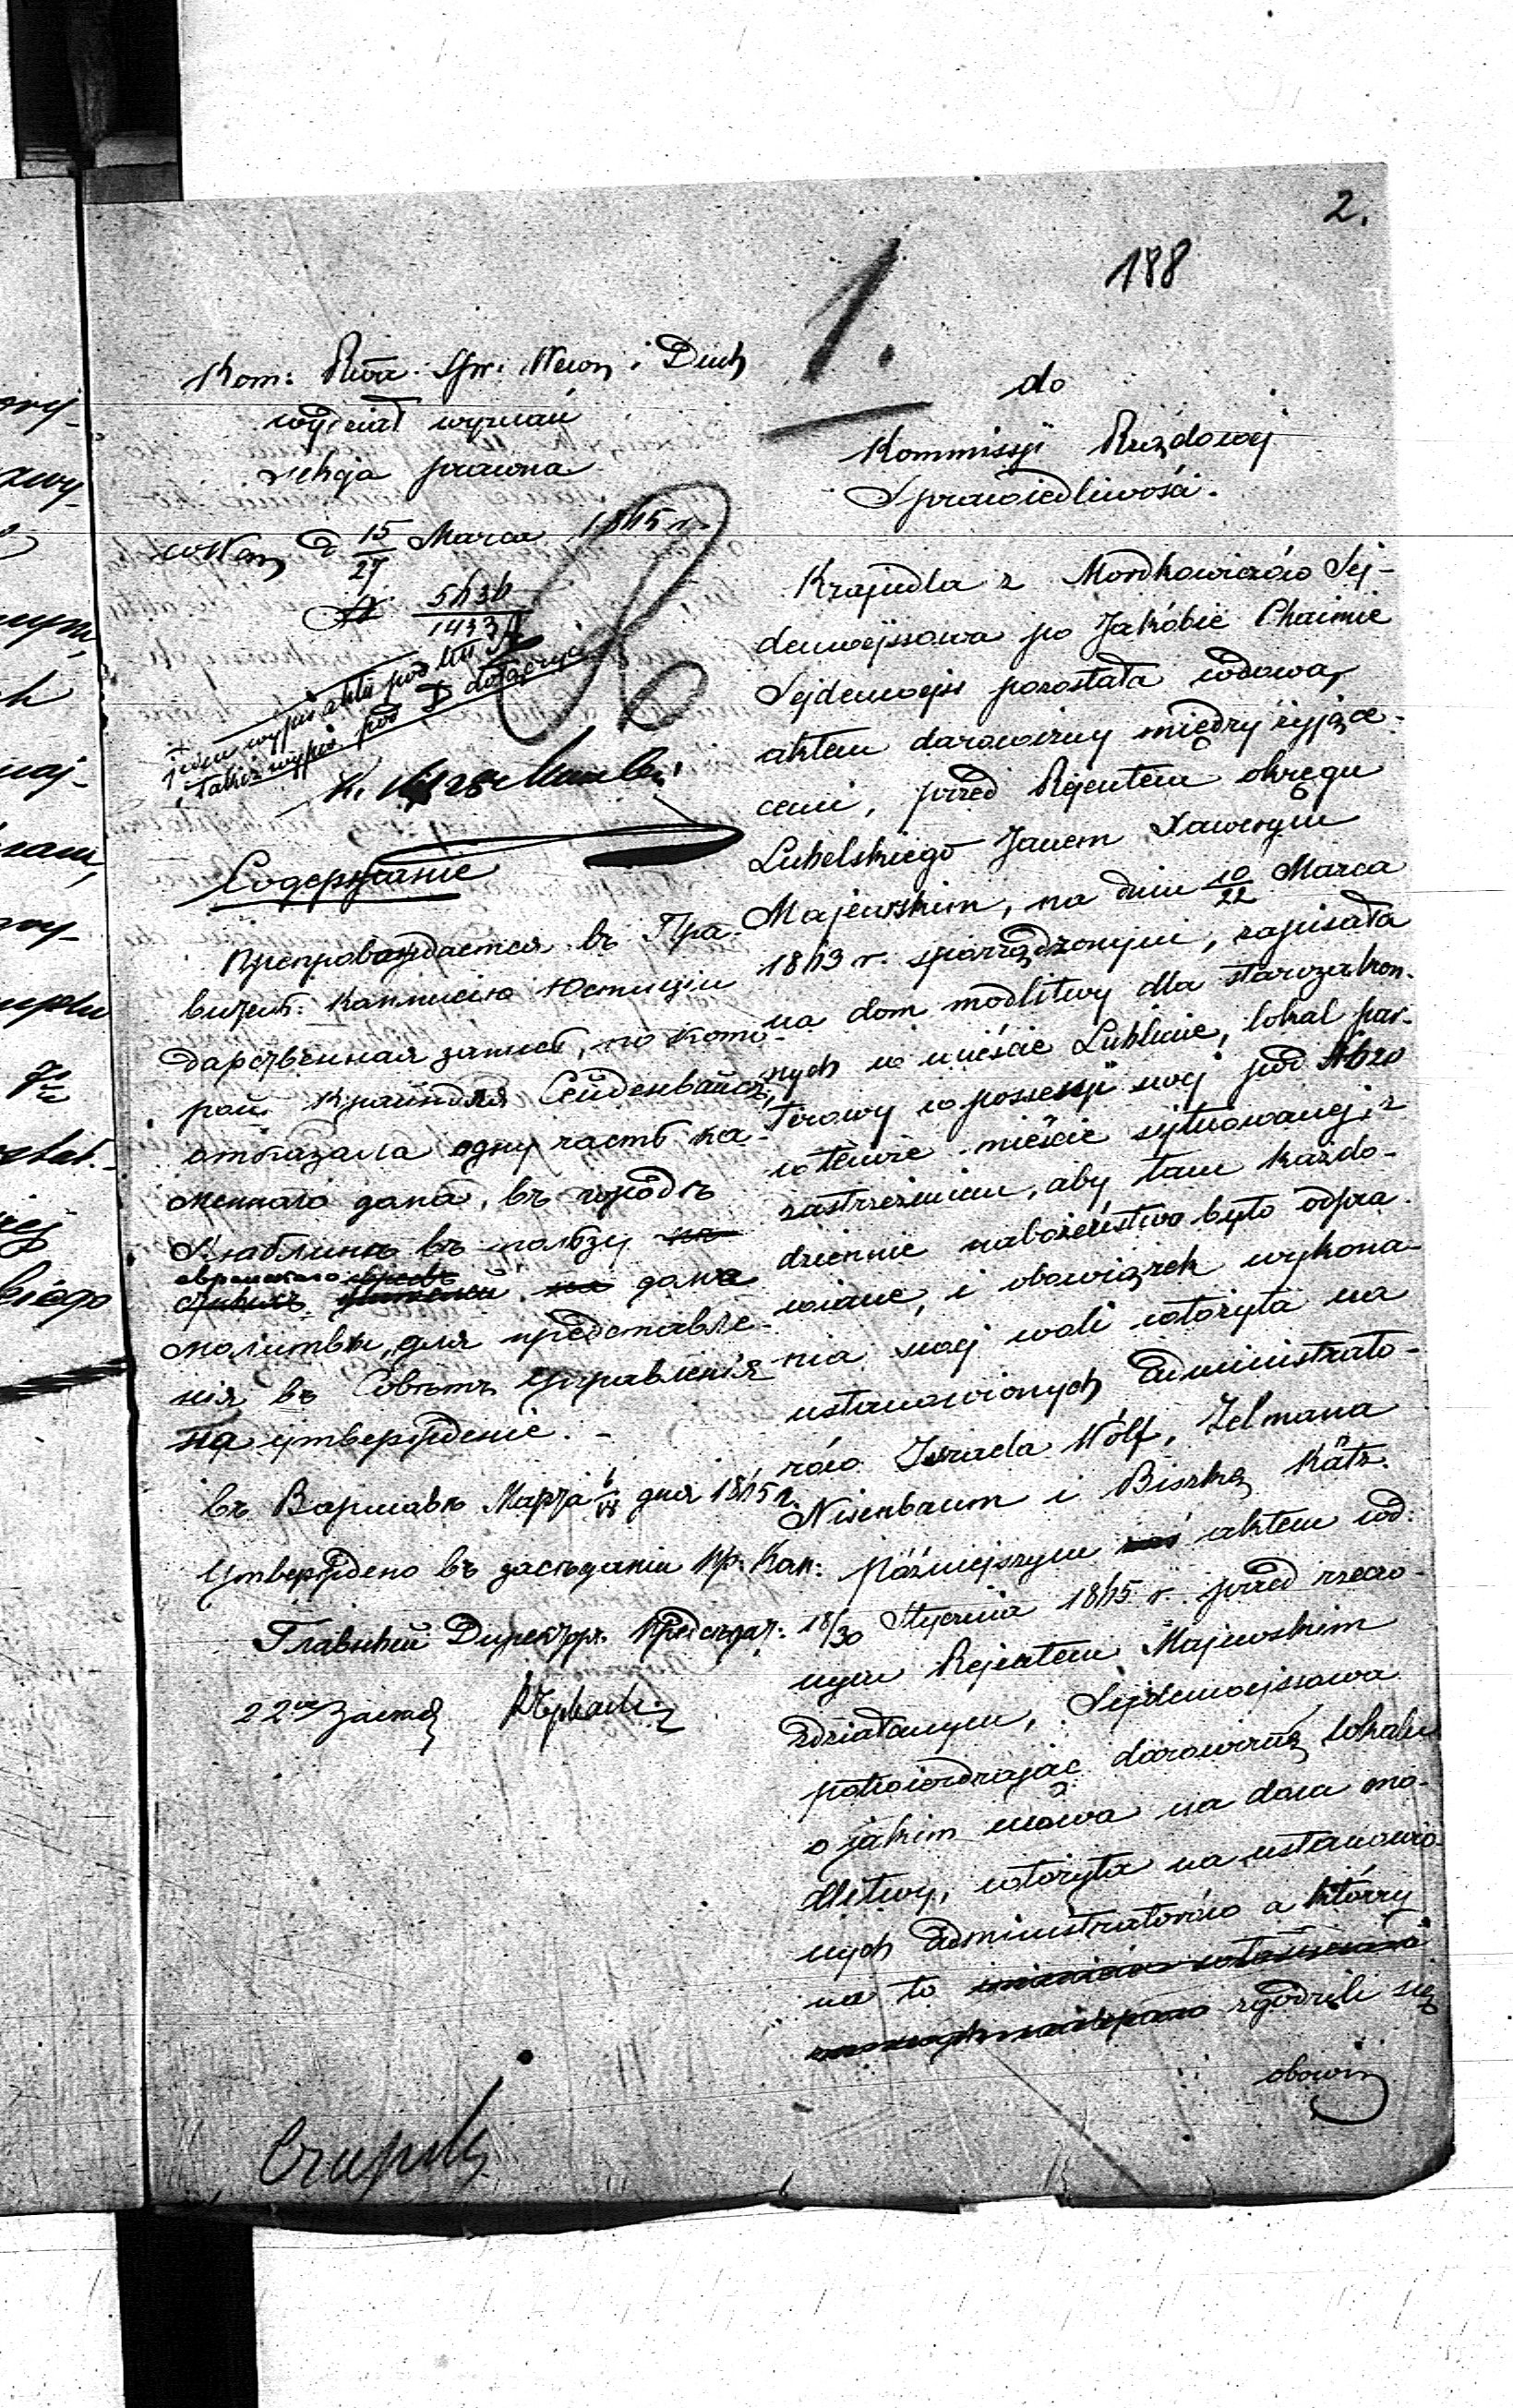 2.
188
1.
Kom: Rwa. Spr. Wewn. i Duch
wydział wyznań
sekcja prawna
w War d 15/27 Marca 1845 r.
№ 5436/1433
jeden wypis aktu pod
takiż wypis pod D dołączyć
Содержание
Препровождается въ Пра-
вител: Коммисію Юстиціи
дарственная запись, по кото-
рой Крайндля Сейденвайсъ
отказала одну часть ка-
меннаго дома, въ городѣ
Люблинѣ въ пользу
еврейскаго
дома
молитвы, для представле-
нія въ Совѣтъ Управленія
на утвержденіе. -
въ Варшавѣ Марта 6/18 дня 1845 г.
Утверждено въ засѣданіи Пр: Ком:
Главный Директоръ Предсѣдат:
do
Kommissyi Rządowej
Sprawiedliwości.
Krajndla z Mordkowiczów Sej-
denwejssowa po Jakóbie Chaimie
Sejdenwejss pozostała wdowa,
aktem darowizny między żyjące-
cemi, przed Rejentem okręgu
Lubelskiego Janem Xawerym
Majewskim, na dniu 10/22 Marca
1843 r. sporządzonym, zapisała
na dom modlitwy dla starozakon-
nych w mieście Lublinie, lokal par-
terowy w possessyi swej pod №
w temże mieście sytuowanej, z
zastrzeżeniem, aby tam każdo-
dziennie nabożeństwo było odpra-
wiane, i obowiązek wykona-
nia swej woli włożyła na
ustanowionych Administrato-
rów Izraela Wolf, Zelmana
Nisenbaum i Biszkę Katz.
Późniejszym zaś aktem wd.
18/30 Stycznia 1845 r. przed rzeczo-
nym Rejentem Majewskim
zdziałanym, Sejdenwejssowa
potwierdzając darowiznę lokalu
o jakim mowa na dom mo-
dlitwy, włożyła na ustanowio-
nych Administratorów a którzy
na to
zgodzili się
obowią